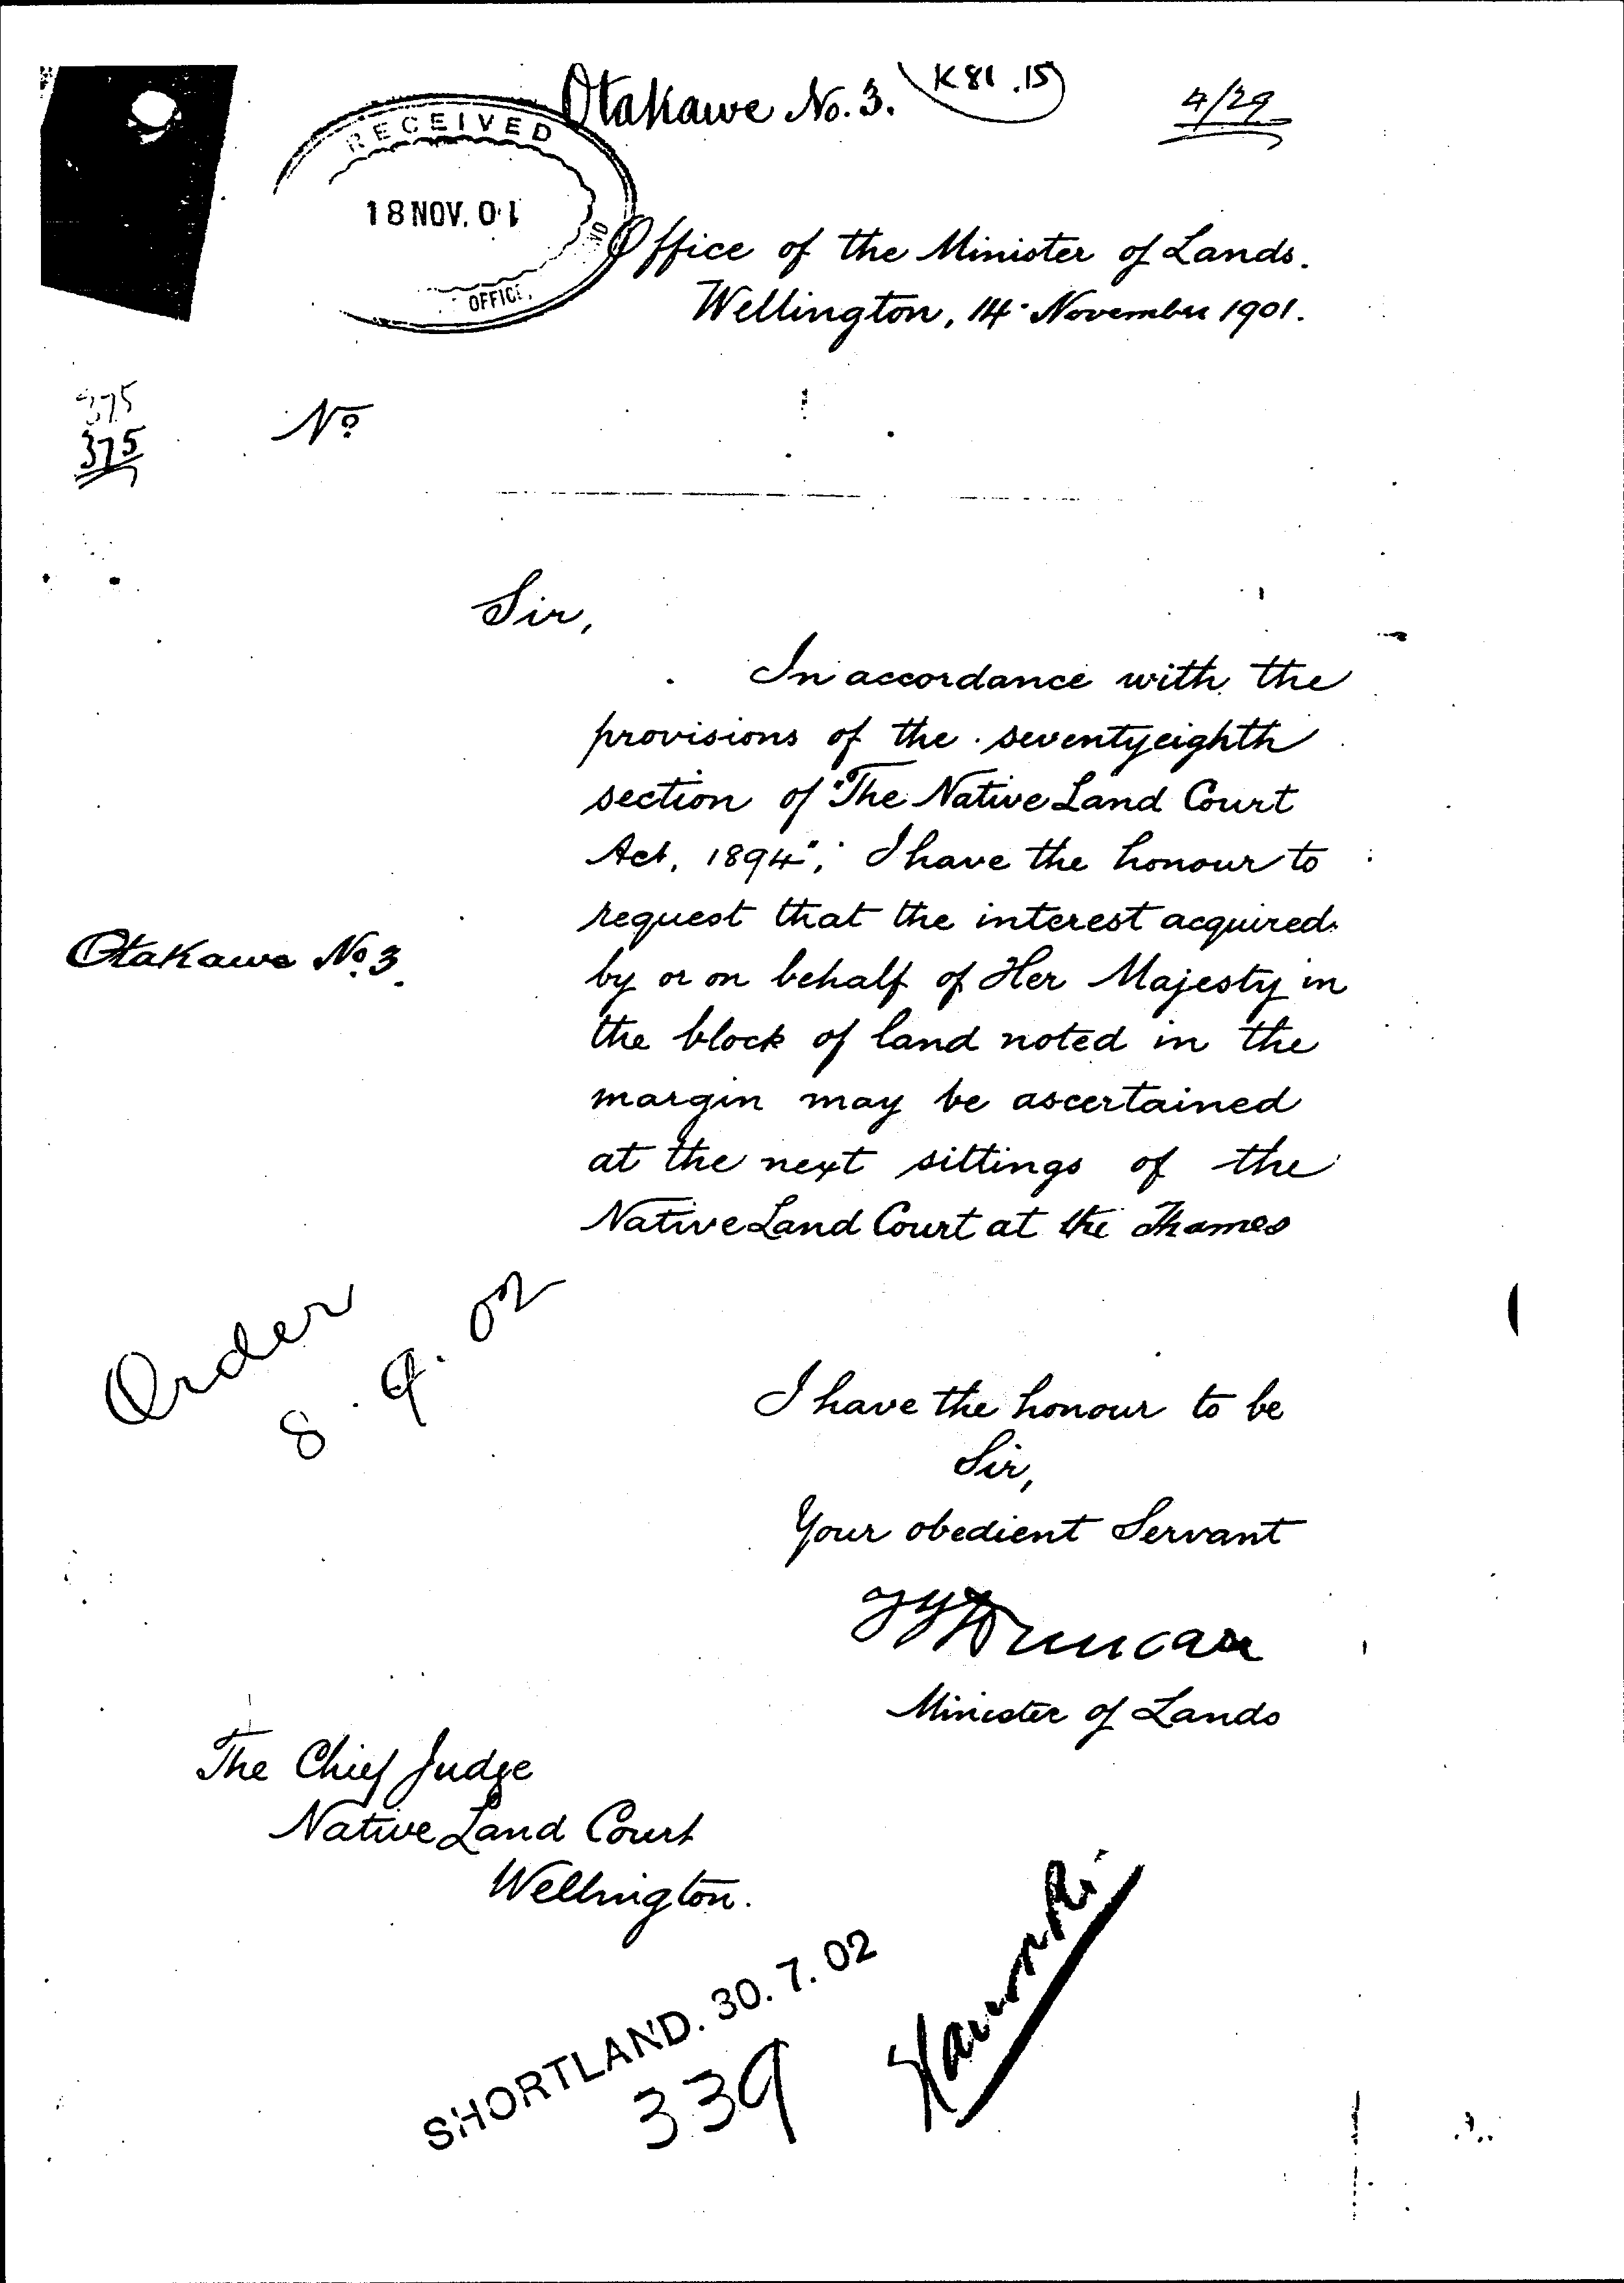 Otakawe No. 3. K81.15 4/29
RECEIVED
18 NOV. 01
OFFICE.
Office of the Minister of Lands.
Wellington, 14 November 1901.
375
375
No
Sir,
In accordance with the
provisions of the seventyeighth
section of "The Native Land Court
Act, 1894", I have the honour to
request that the interest acquired
Otakawe No. 3.
by or on behalf of Her Majesty in
the block of land noted in the
margin may be ascertained
at the next sittings of the
Native Land Court at the Thames
Order
8.9.02
I have the honour to be
Sir,
Your obedient Servant
Duncan
Minister of Lands
The Chief Judge
Native Land Court
Wellington.
SHORTLAND. 30.7.02
339
Hauraki